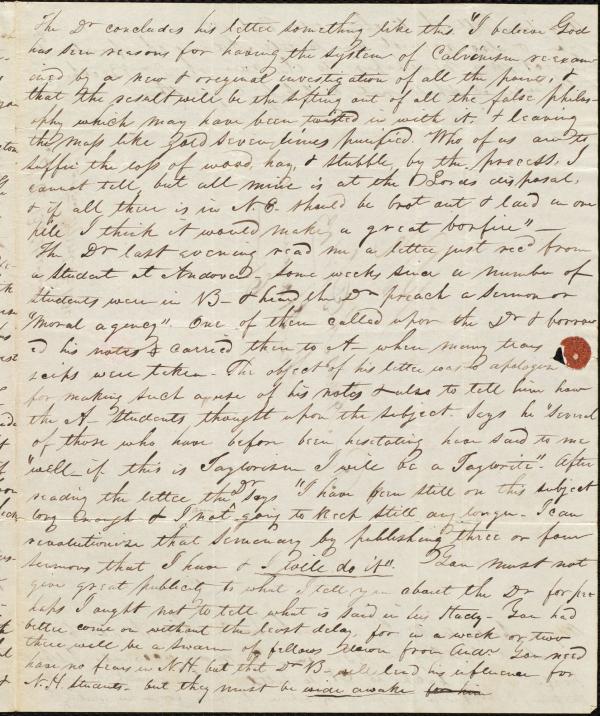 The Dr concludes his letter something like this "I believe God
has seen reasons for having the system of Calvinism re-exam
ined by a new & original investigation of all the points, &
that the result will be the sifting out of all the false philos-
ophy which may have been twisted in with it, & leaving
the mass like gold seven times purified. Who of us are to
suffer the loss of wood, hay, & stubble, by the process, I
cannot tell, but all mine is at the Lords disposal,
& if all there is in N.E. should be brot out & laid in one
pile I think it would make a great bonfire" —
The Dr last evening read me a letter just recd from
a student at Andover — Some weeks since a number of
students were in NB — & heard the Dr preach a sermon on
"Moral agency". One of them called upon the Dr & borrow
ed his notes & carried them to A when many trans
scrips were taken — The object of his letter was to apologise
for making such a use of his notes & also to tell him how
the A— students thought upon the subject. Says he "Several
of those who have before been hesitating have said to me
"well if this is Taylorism I will be a Taylorite". After
reading the letter the Dr says "I have been still on this subject
long enough & I'm not going to keep still any longer — I can
revolutionise that Seminary by publishing three or four
sermons that I have & I will do it". You must not
give great publicity to what I tell you about the Dr for per
haps I ought not to tell what is said in his Study — You had
better come on without the least delay, for in a week or two
there will be a swarm of fellows down from Andr. You need
have no fears in N.H. but that Dr B— will lend his influence for
N.H. students — but they must be wide awake